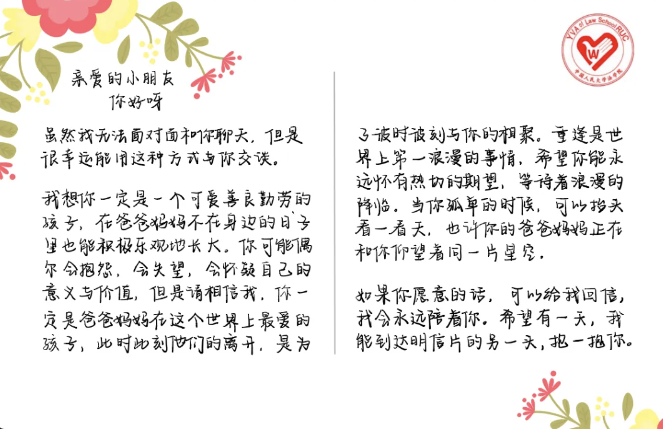 亲爱的小朋友
你好呀
虽然我无法面对面和你聊天，但是
很幸运能用这种方式与你交谈。
我想你一定是一个可爱善良勤劳的
孩子，在爸爸妈妈不在身边的日子
里也能积极乐观地长大。你可能偶
尔会抱怨，会失望，会怀疑自己的
意义与价值，但是请相信我，你一
定是爸爸妈妈在这个世界上最爱的
孩子，此时此刻他们的离开，是为
了彼时彼刻与你的相聚。重逢是世
界上第一浪漫的事情，希望你能永
远怀有热切的期望，等待着浪漫的
降临。当你孤单的时候，可以抬头
看一看天，也许你的爸爸妈妈正在
和你仰望着同一片星空。
如果你愿意的话，可以给我回信，
我会永远陪着你。希望有一天，我
能到达明信片的另一天，抱一抱你。
YVA of Law School RUC
W
中国人民大学法学院